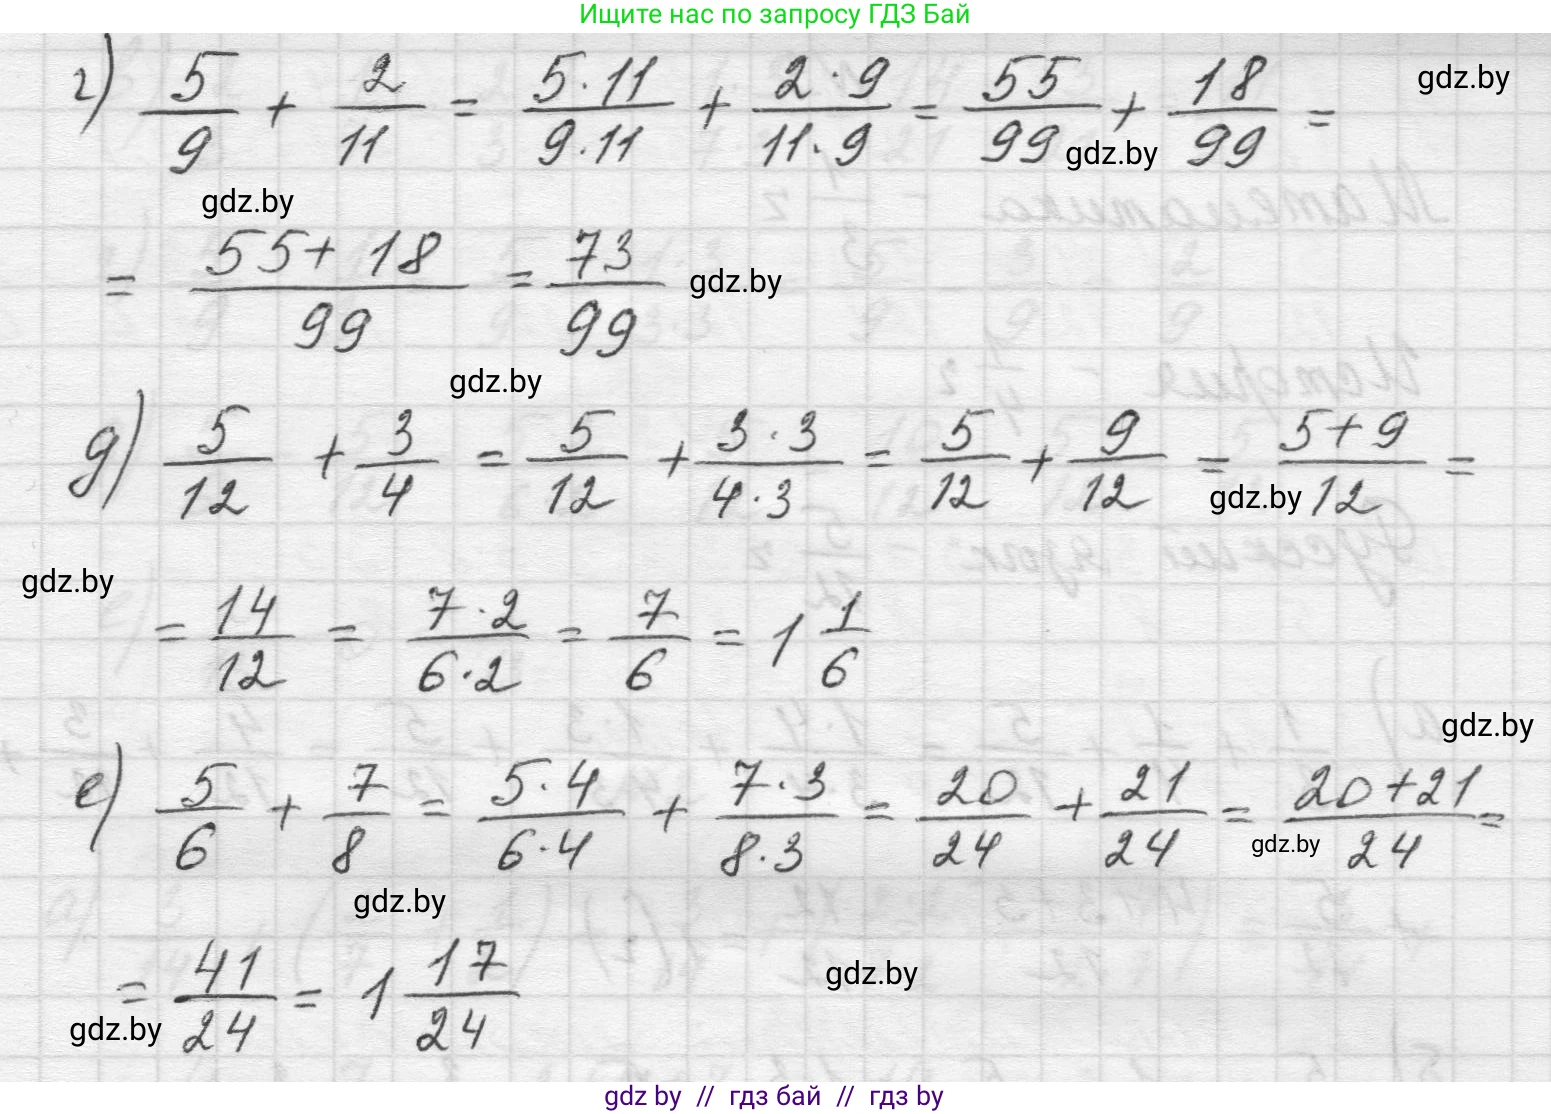 Ищите нас по запросу ГДЗ Бай
г) 5/9 + 2/11 = 5·11/9·11 + 2·9/11·9 = 55/99 + 18/99 =
gdz.by
gdz.by
gdz.by
= 55+18/99 = 73/99
gdz.by
gdz.by
д) 5/12 + 3/4 = 5/12 + 3·3/4·3 = 5/12 + 9/12 = 5+9/12 =
gdz.by
gdz.by
= 14/12 = 7·2/6·2 = 7/6 = 1 1/6
gdz.by
е) 5/6 + 7/8 = 5·4/6·4 + 7·3/8·3 = 20/24 + 21/24 = 20+21/24 =
gdz.by
gdz.by
= 41/24 = 1 17/24
gdz.by
gdz.by
gdz by // гдз бай // гдз by